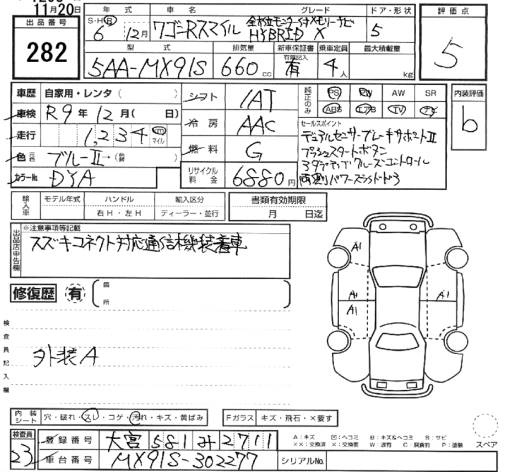 11月20日
出品番号
282
年式 車名 グレード ドア・形状
S・H・R 6年 12月 ワゴンRスマイル 全方位モニター付メモリーナビ HYBRID X 5
評価点
5
型式 排気量 新車保証書 乗車定員 最大積載量
5AA-MX91S 660cc 有 4人 kg
車歴 自家用・レンタ( )
車検 R9年12月( 日)
走行 1,234 km マイル
色 ブルーⅡ
カラーNo. DYA
シフト IAT
冷房 AAC
燃料 G
リサイクル料金 6880円
純正のみ PS PW AW SR
ABS エアB TV ナビ
セールスポイント
デュアルセンサーブレーキサポートⅡ
プッシュスタートボタン
アダプティブクルーズコントロール
両側パワースライドドア
内装評価
b
輸入車 モデル年式 ハンドル 輸入区分
年 右H・左H ディーラー・並行
書類有効期限
月 日迄
出品店申告欄
※注意事項等記載
スズキコネクト対応通信機装着車
修復歴 有
箇所
検査員記入欄
外装A
A1
A1 A1
A1
内装シート 穴・破れ・スレ・コゲ・汚れ・キズ・黄ばみ
Fガラス キズ・飛石・×要す
検査員
23
登録番号 大宮 581 み 2711
車台番号 MX91S-302277
シリアルNo.
A:キズ U:ヘコミ B:キズ&ヘコミ S:サビ
XX:交換済 X:交換要 W:波有 C:腐食 P:塗装
スペア